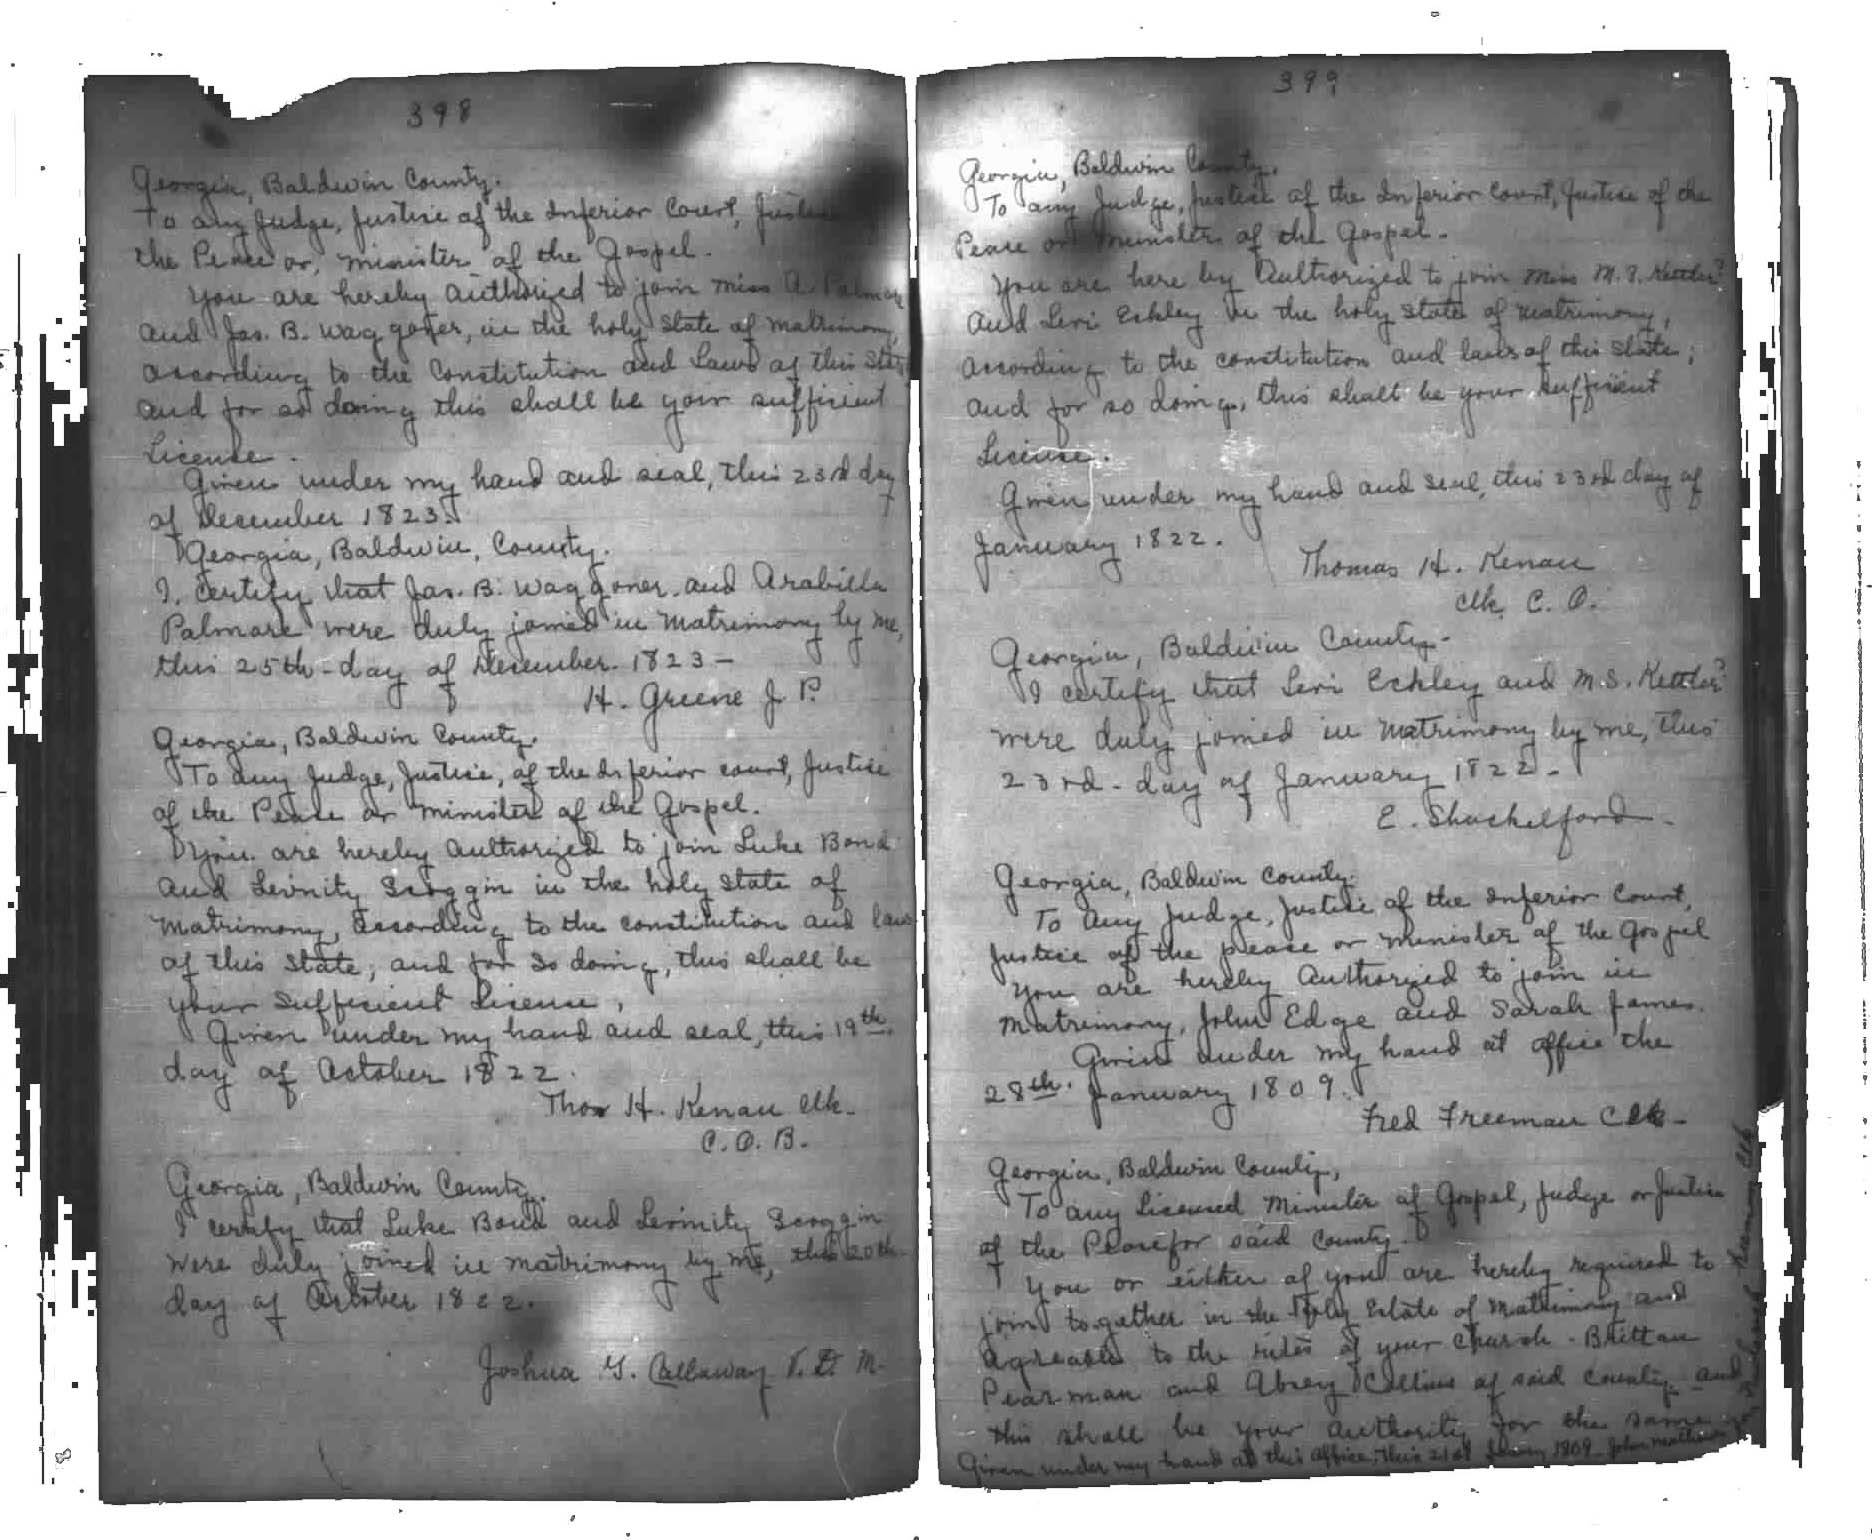 398
Georgia, Baldwin County.
To any Judge, Justice of the Inferior Court, Justice
the Peace or, minister of the Gospel.
You are hereby authorized to join Miss A. Palmore
and Jas. B. Waggoner, in the holy state of matrimony,
according to the Constitution and Laws of this State
and for so doing this shall be your sufficient
License.
Given under my hand and seal, this 23rd day
of December 1823.
Georgia, Baldwin, County.
I, certify that Jas. B. Waggoner and Arabilla
Palmore were duly joined in Matrimony by me,
this 25th-day of December. 1823-
H. Greene J P.
Georgia, Baldwin County.
To any Judge, Justice, of the Inferior court, Justice
of the Peace or minister of the Gospel.
You are hereby authorized to join Luke Bond
and Levinity Scoggin in the holy state of
matrimony, according to the constitution and laws
of this State; and for so doing, this shall be
your sufficient License,
Given under my hand and seal, this 19th
day of October 1822.
Thos H. Kenan Clk.
C. O. B.
Georgia, Baldwin County.
I certify that Luke Bond and Levinity Scoggin
were duly joined in matrimony by me, this 20th
day of October 1822.
Joshua G. Callaway V. D. M.
399
Georgia, Baldwin County.
To any Judge, Justice of the Inferior Court, Justice of the
Peace or minister of the Gospel.
You are here by Authorized to join Miss M. S. Kettler?
and Levi Eckley in the holy state of matrimony,
according to the constitution and laws of this State;
and for so doing, this shall be your sufficient
License.
Given under my hand and seal, this 23rd day of
January 1822.
Thomas H. Kenan
Clk. C. O.
Georgia, Baldwin County.
I certify that Levi Eckley and M.S. Kettler?
were duly joined in matrimony by me, this
23rd-day of January 1822-
E. Shackelford-
Georgia, Baldwin County.
To any Judge, Justice of the Inferior Court,
Justice of the please or minister of the Gospel
you are hereby Authorized to join in
matrimony, John Edge and Sarah James.
Given under my hand at office the
28th. January 1809.
Fred Freeman Clk-
Georgia, Baldwin County,
To any Licensed Minister of Gospel, Judge or Justice
of the Peace for said County.
You or either of you are hereby required to
join together in the Holy Estate of Matrimony and
agreable to the rules of your Church - Brittan
Pearman and Absey Collins of said County, and
this shall be your Authority for the same
Given under my hand at this office, this 21st January 1809- John Mathews